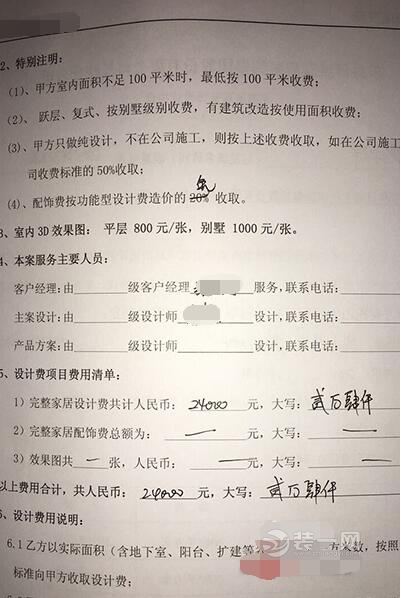 2、特别注明：
(1)、甲方室内面积不足 100 平米时，最低按 100 平米收费；
(2)、 跃层、复式、按别墅级别收费，有建筑改造按使用面积收费；
(3)、甲方只做纯设计，不在公司施工，则按上述收费收取，如在公司施工
司收费标准的 50%收取；
(4)、配饰费按功能型设计费造价的 20% 收取。
3、室内 3D 效果图： 平层 800 元/张，别墅 1000 元/张。
4、本案服务主要人员：
客户经理：由______级客户经理______服务，联系电话：______
主案设计：由______级设计师______设计，联系电话：______
产品方案：由______级设计师______设计，联系电话：______
5、设计费项目费用清单：
1）完整家居设计费共计人民币： 24000 元，大写： 贰万肆仟
2）完整家居配饰费总额为： — 元，大写： —
3）效果图共 — 张，人民币： — 元，大写： —
以上费用合计，共人民币： 24000 元，大写： 贰万肆仟
6、设计费用说明：
6.1 乙方以实际面积（含地下室、阳台、扩建等 方米数，按照
标准向甲方收取设计费；
装一网